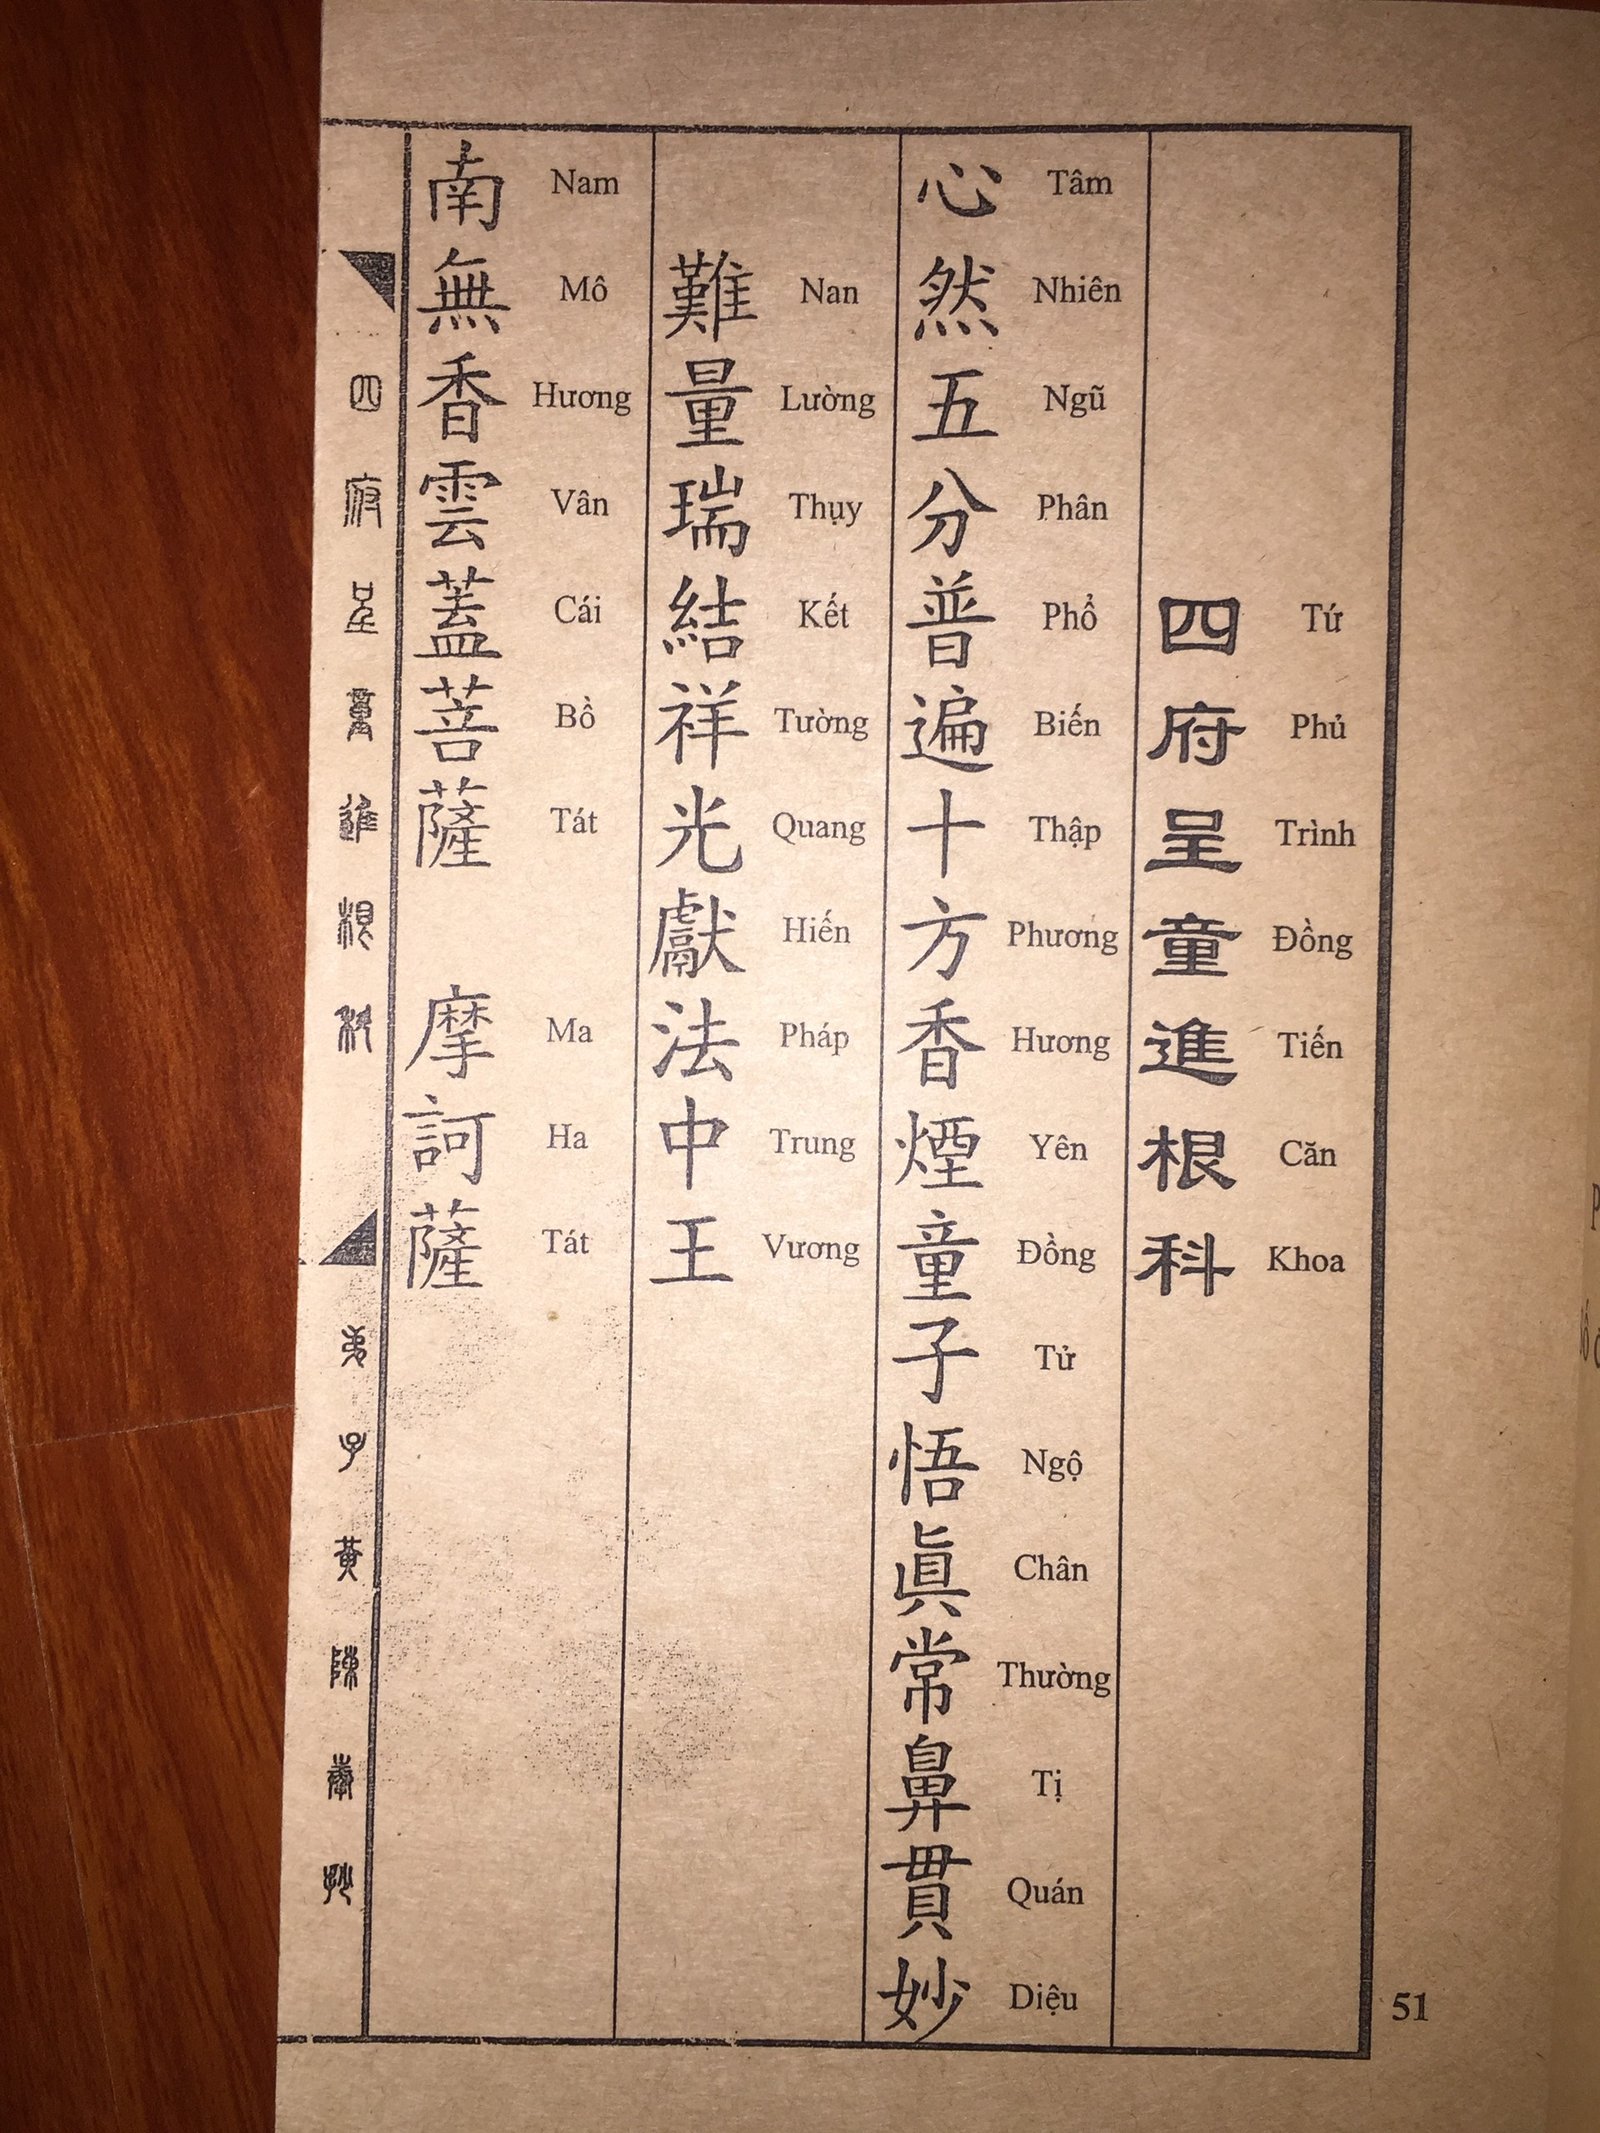 四府呈童進根科
Tứ Phủ Trình Đồng Tiến Căn Khoa
心然五分普遍十方香煙童子悟眞常鼻貫妙
Tâm Nhiên Ngũ Phân Phổ Biến Thập Phương Hương Yên Đồng Tử Ngộ Chân Thường Tị Quán Diệu
難量瑞結祥光獻法中王
Nan Lường Thụy Kết Tường Quang Hiến Pháp Trung Vương
南無香雲蓋菩薩 摩訶薩
Nam Mô Hương Vân Cái Bồ Tát Ma Ha Tát
四府呈童進根科
弟子黄陳奉抄
51